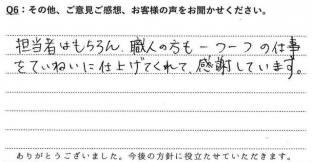 Q6：その他、ご意見ご感想、お客様の声をお聞かせください。
担当者はもちろん、職人の方も一つ一つの仕事
をていねいに仕上げてくれて、感謝しています。
ありがとうございました。今後の方針に役立たせていただきます。